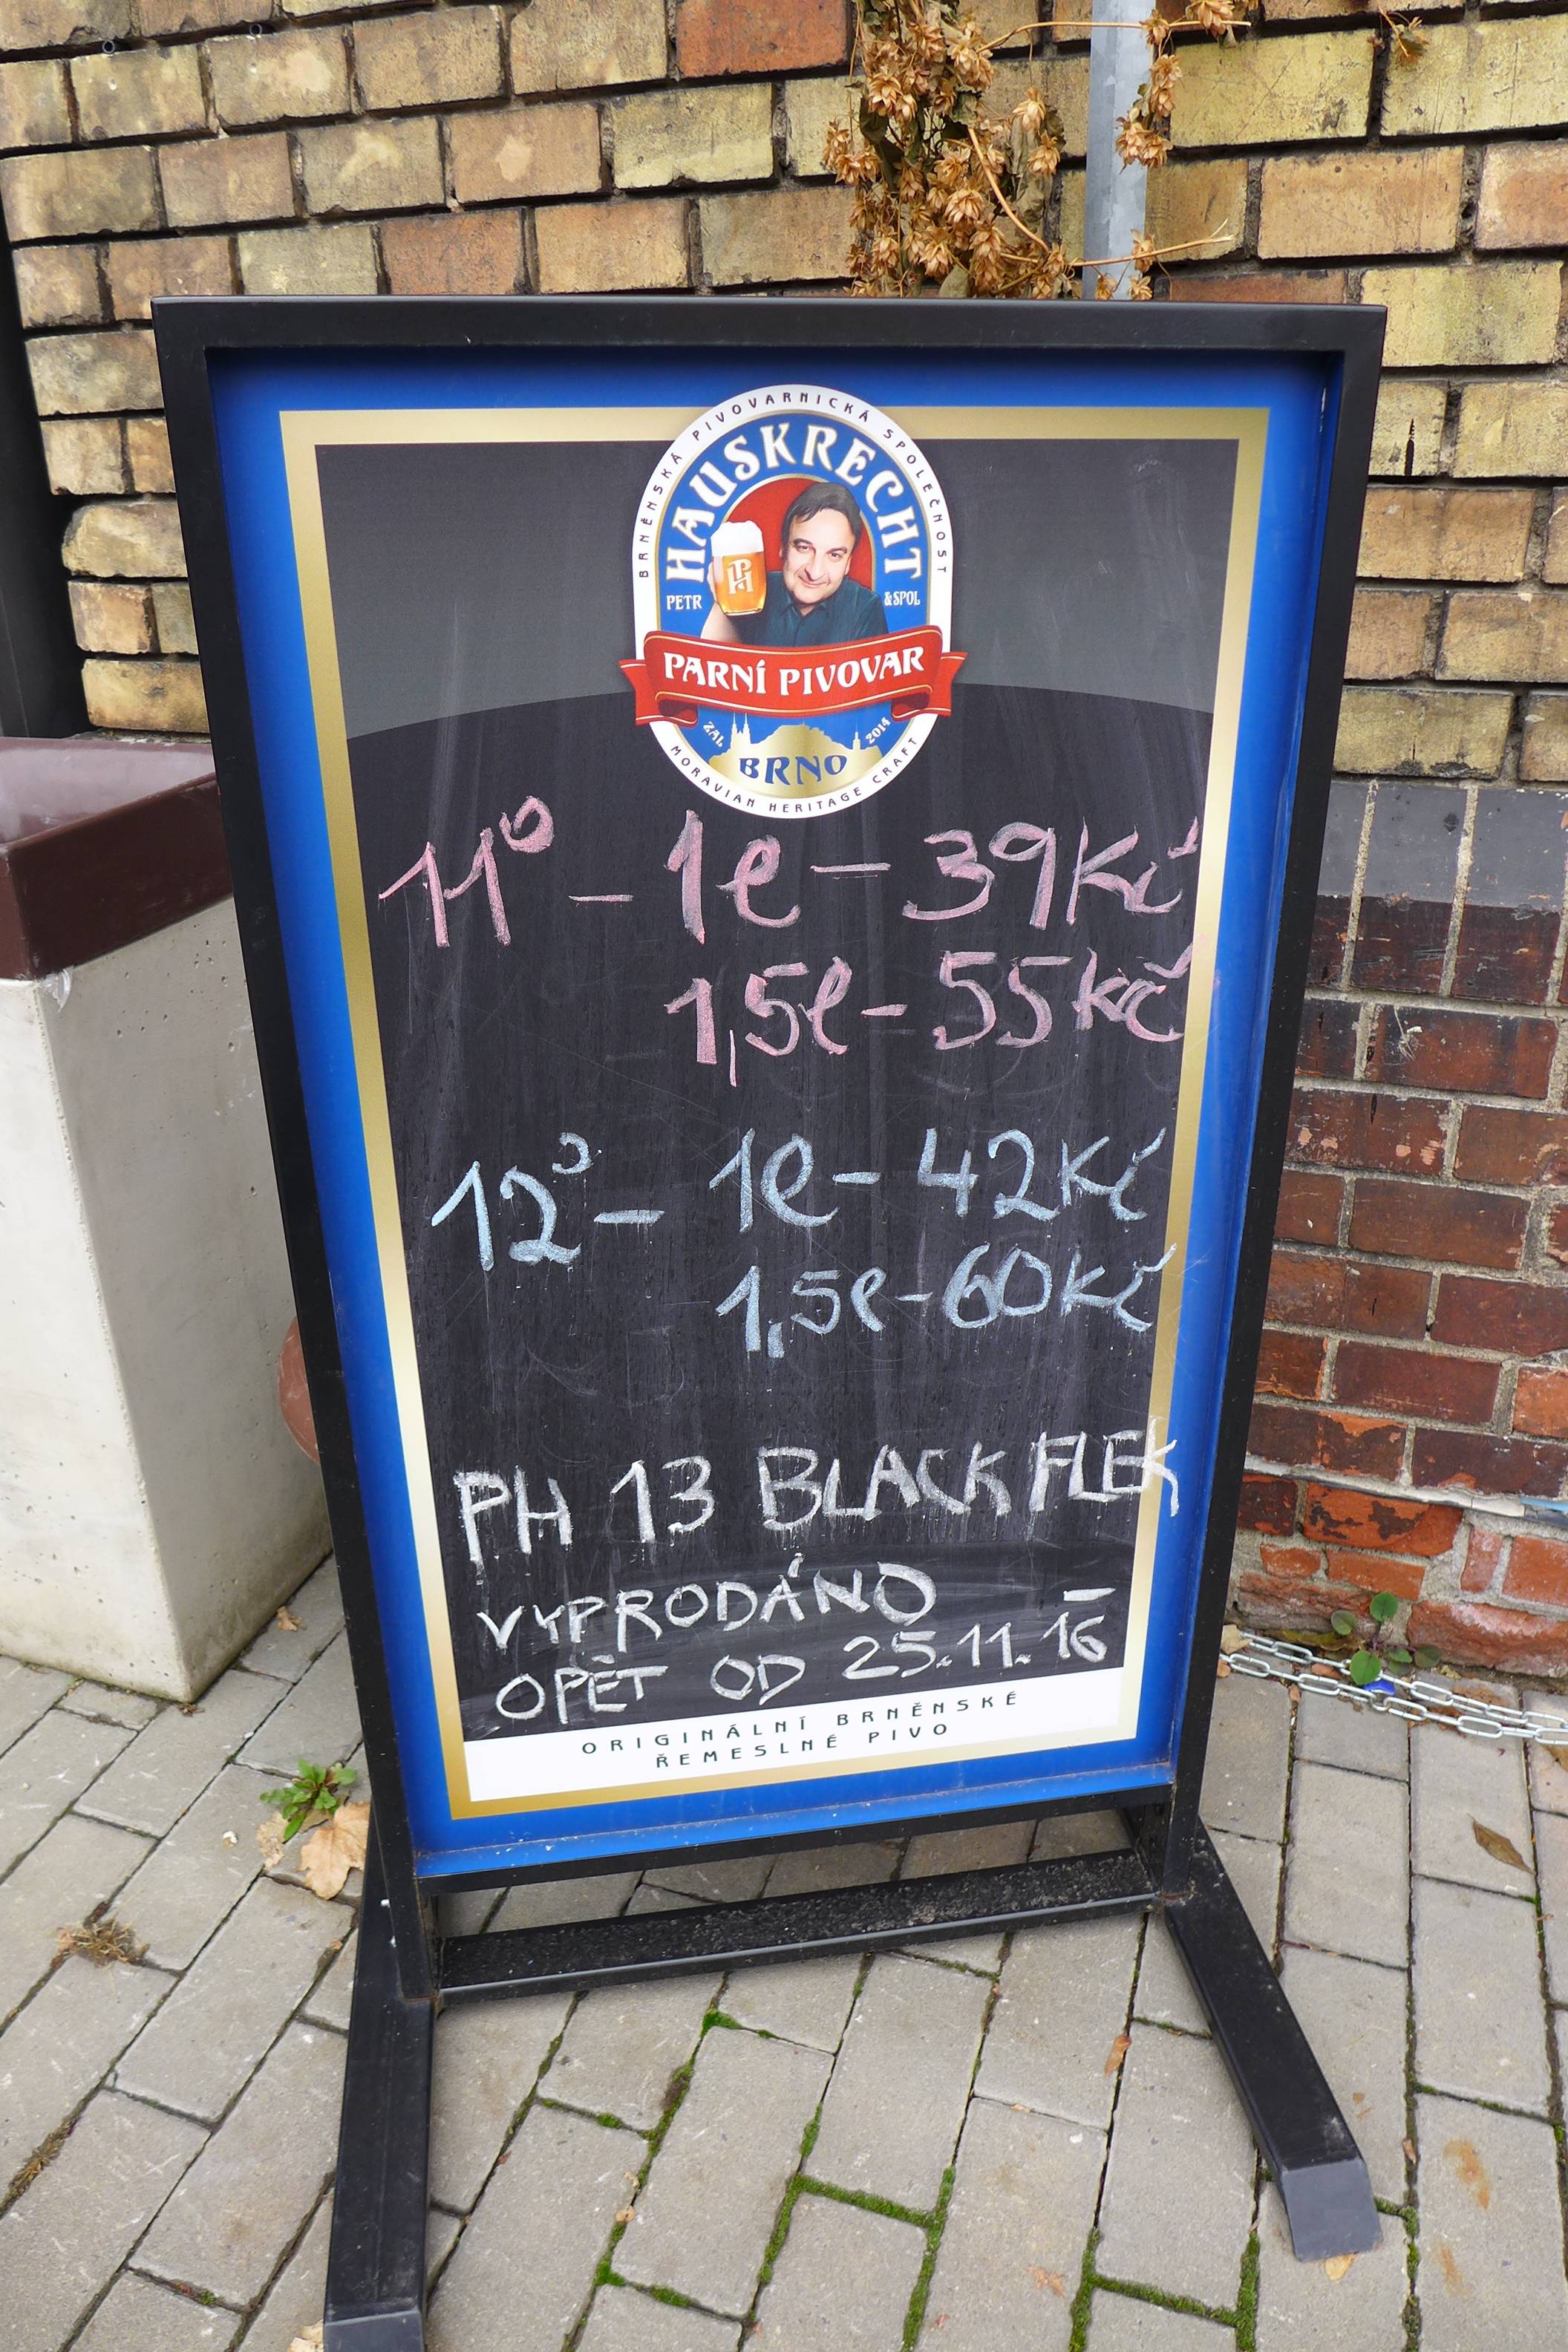 BRNĚNSKÁ PIVOVARNICKÁ SPOLEČNOST
HAUSKRECHT
PETR & SPOL
PARNÍ PIVOVAR
ZAL 2014
BRNO
MORAVIAN HERITAGE CRAFT
11° – 1l – 39Kč
1,5l – 55Kč
12° – 1l – 42Kč
1,5l – 60Kč
PH 13 BLACK FLEK
VYPRODÁNO
OPĚT OD 25.11. 16
ORIGINÁLNÍ BRNĚNSKÉ
ŘEMESLNÉ PIVO